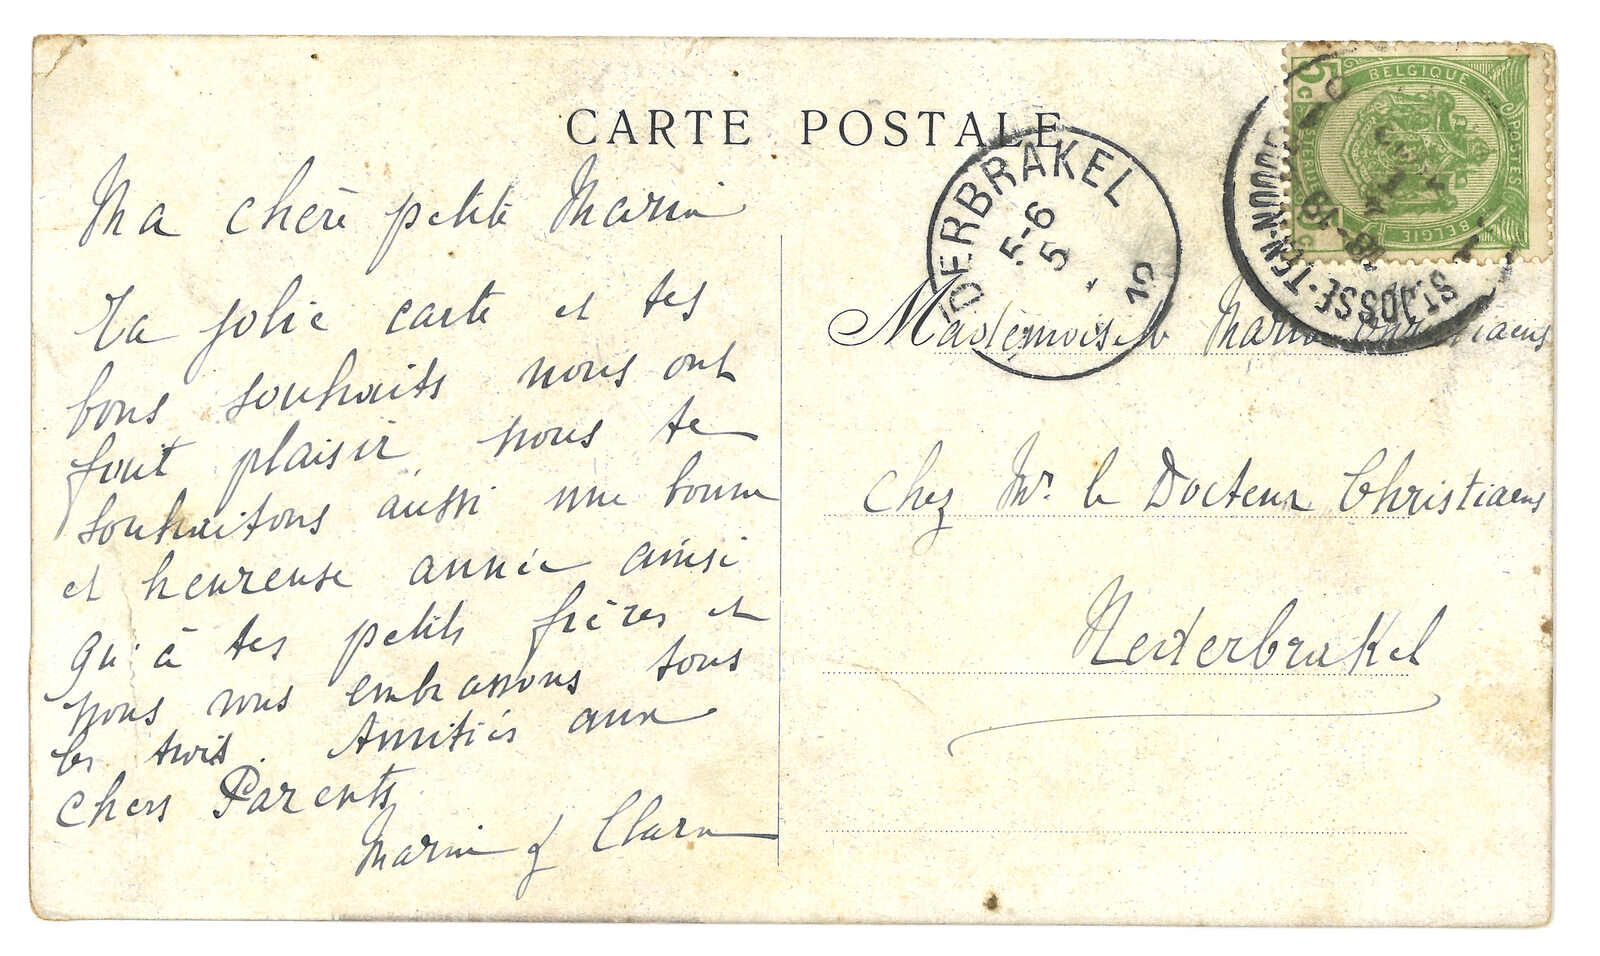 CARTE POSTALE
Ma chère petite Maria
Ta jolie carte et tes
bons souhaits nous ont
fait plaisir, nous te
souhaitons aussi une bonne
et heureuse année ainsi
qu'à tes petits frères et
nous vous embrassons tous
les trois. Amitiés aux
chers Parents
Maria & Clara
DERBRAKEL
5-6
5
12
5c
BELGIQUE
POSTES
BELGIE
ST. JOSSE-TEN-NOODE
Mademoiselle Maria Christiaens
Chez Mr. le Docteur Christiaens
Nederbrakel